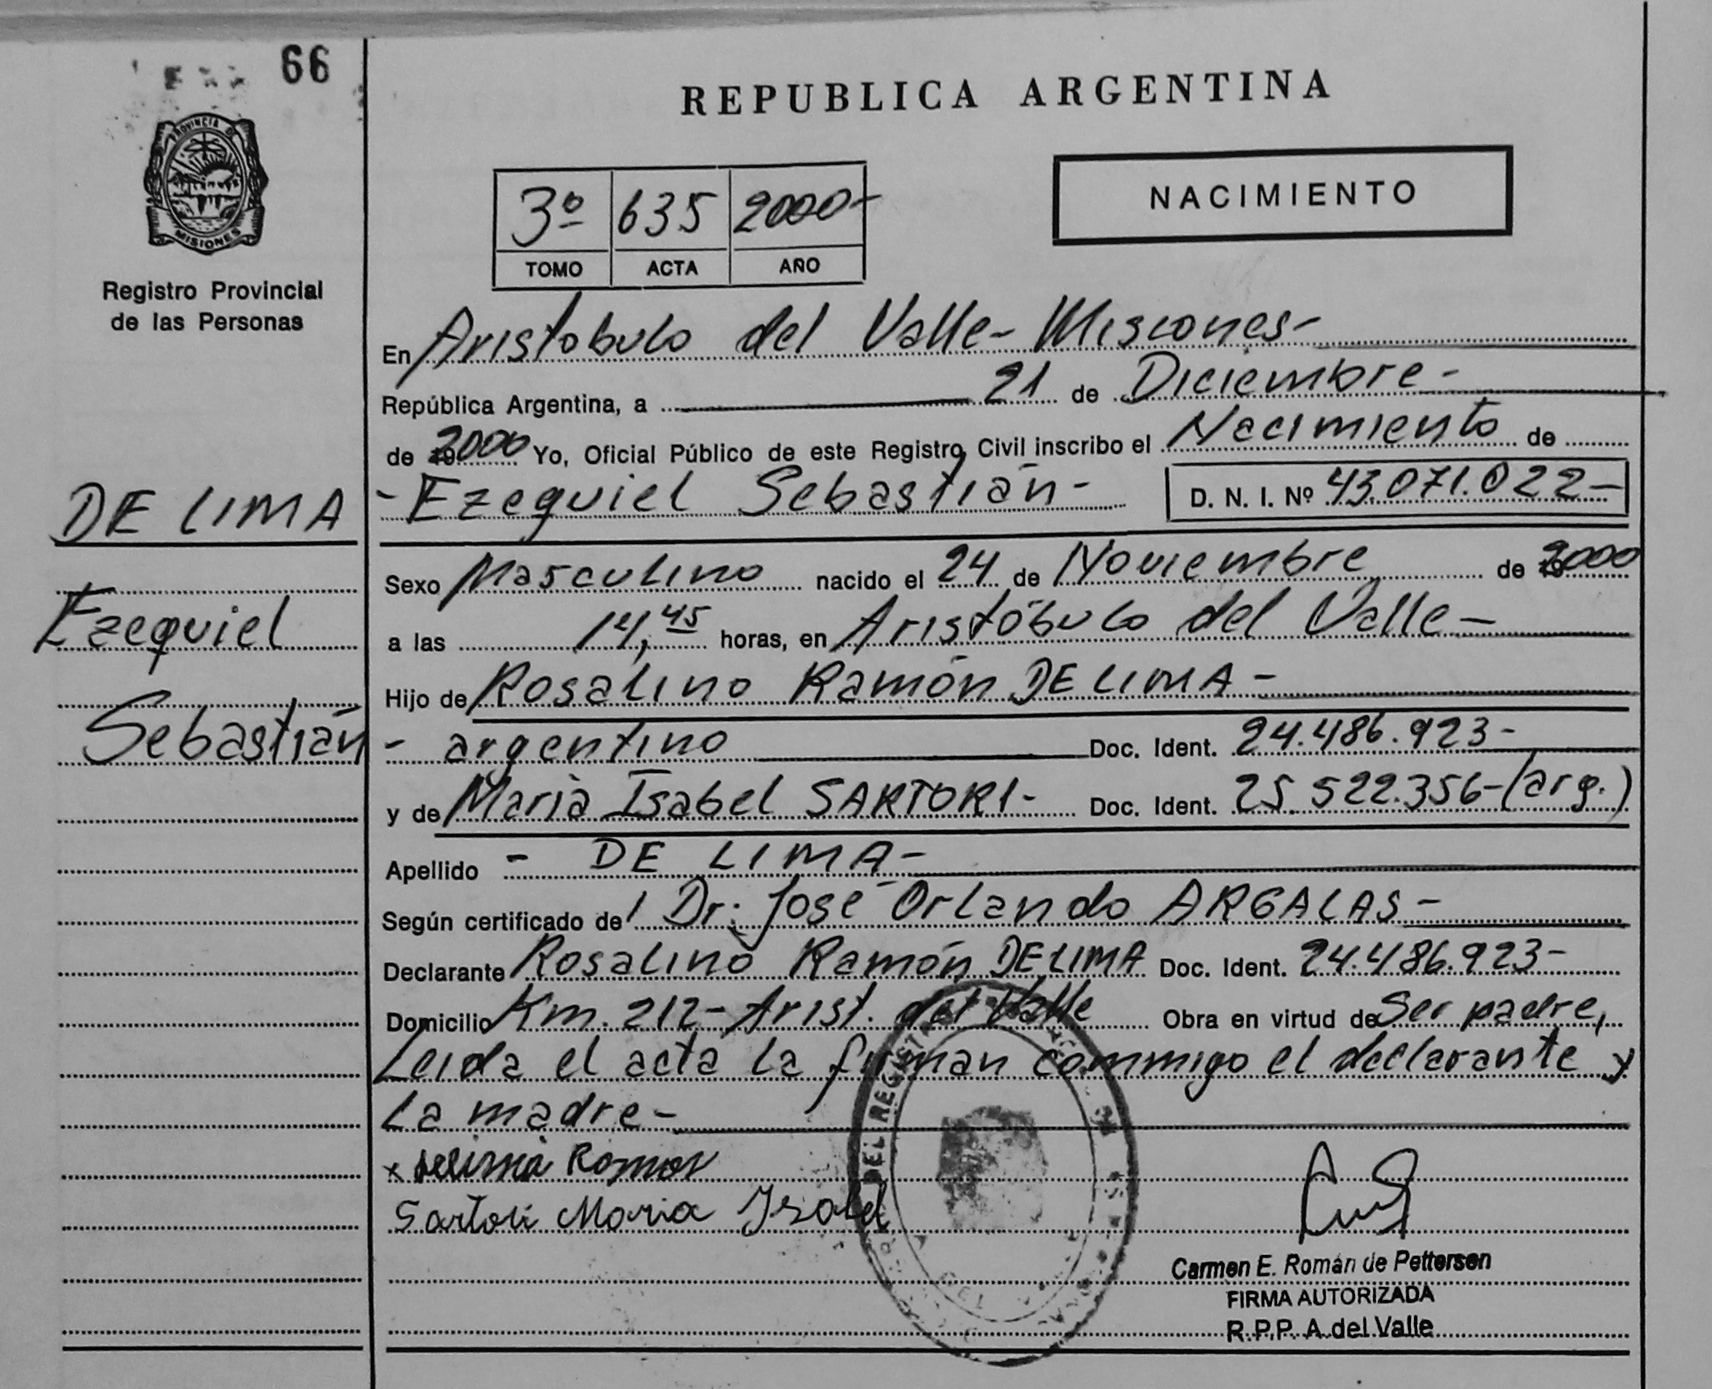 66
PROVINCIA DE
MISIONES
Registro Provincial
de las Personas
REPUBLICA ARGENTINA
3º 635 2000-
TOMO ACTA AÑO
NACIMIENTO
En Aristobulo del Valle- Misiones-
República Argentina, a 21 de Diciembre-
de 2000 Yo, Oficial Público de este Registro Civil inscribo el Nacimiento de
DE LIMA
Ezequiel
Sebastián
- Ezequiel Sebastián- D. N. I. Nº 43.071.022-
Sexo Masculino nacido el 24 de Noviembre de 2000
a las 14,45 horas, en Aristóbulo del Valle-
Hijo de Rosalino Ramón DE LIMA-
- argentino Doc. Ident. 24.486.923-
y de María Isabel SARTORI- Doc. Ident. 25.522.356-(arg.)
Apellido - DE LIMA-
Según certificado de Dr: José Orlando ARGALAS-
Declarante Rosalino Ramón DE LIMA Doc. Ident. 24.486.923-
Domicilio Km. 212- Arist. del Valle Obra en virtud de Ser padre,
Leida el acta la firman commigo el declarante y
la madre-
x Ramon
Sartori Maria Isabel
DEL REGIST
DEL
Carmen E. Román de Pettersen
FIRMA AUTORIZADA
R.P.P. A. del Valle